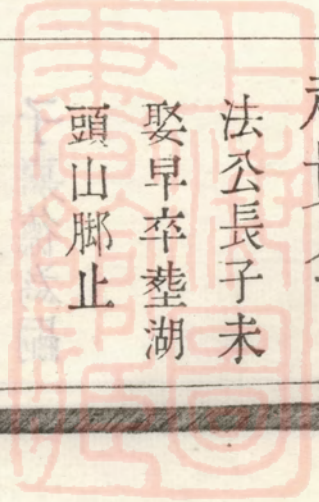 法公長子未
娶早卒塟湖
頭山脚止